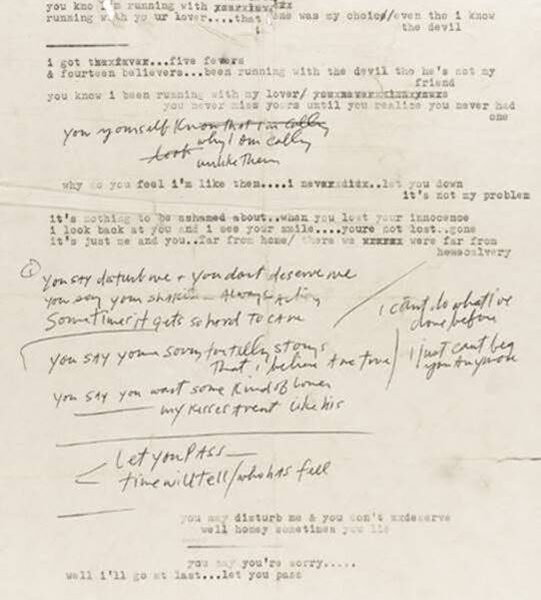 you kno i'm running with
running with yo ur lover....that one was my choice/even tho i know
the devil
i got five fevers
& fourteen believers...been running with the devil tho he's not my
friend
you know i been running with my lover/
you never miss yours until you realize you never had
one
you yourself know that i'm calling
look why I am calling
unlike them
why do you feel i'm like them....i never didx..let you down
it's not my problem
it's nothing to be ashamed about..when you lost your innocence
i look back at you and i see your smile....youre not lost..gone
it's just me and you..far from home/ there we xxxxxx were far from
① you say disturb me + you dont deserve me
you say your shakin - Always
Sometimes it gets so hard to care
I can't do what i've
done before
you say your sorry for telling storys
that i believe are true
I just cant beg
you Anymore
you say you want some kind of lover
my kisses arent like his
Let you PASS —
time will tell/who has fell
you may disturb me & you don't xxdeserve
well honey sometimes you lie
you say you're sorry.....
well i'll go at last...let you pass